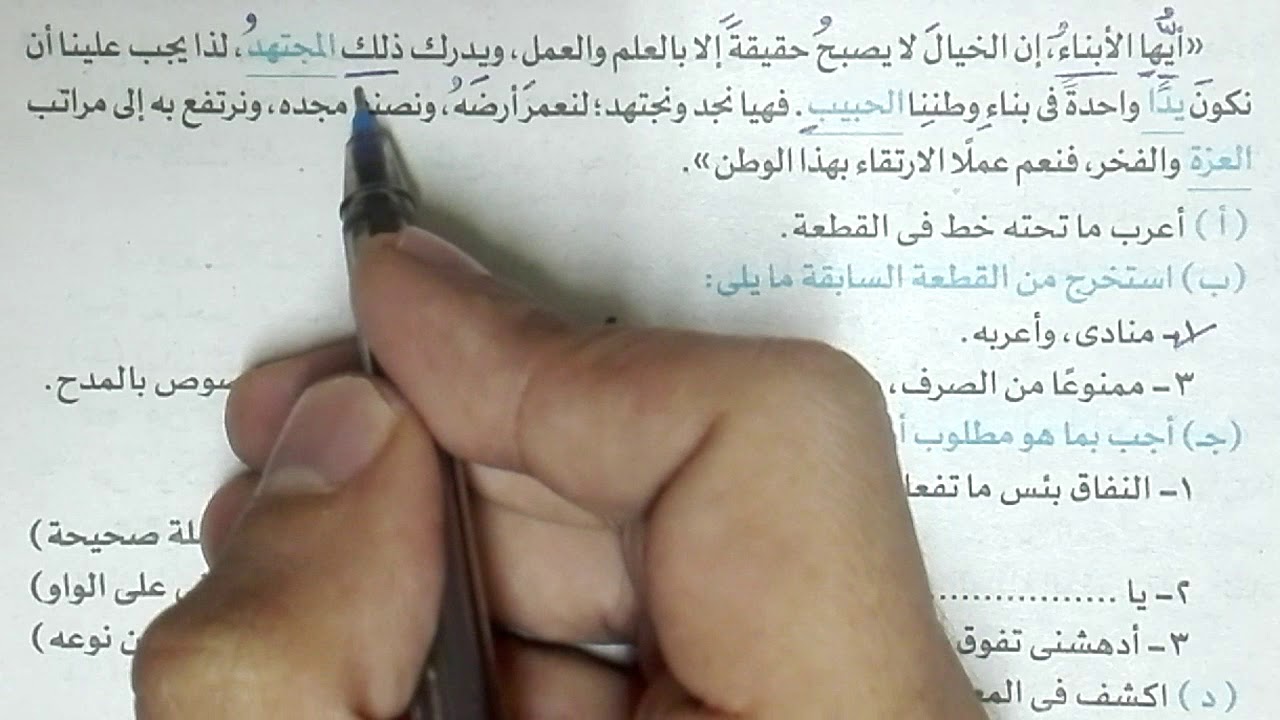 «أيُّها الأبناءُ، إن الخيالَ لا يصبحُ حقيقةً إلا بالعلم والعمل، ويدرك ذلك المجتهدُ، لذا يجب علينا أن
نكونَ يدًا واحدةً فى بناءِ وطنِنا الحبيبِ. فهيا نجد ونجتهد؛ لنعمرَ أرضَهُ، ونصنع مجده، ونرتفع به إلى مراتب
العزة والفخر، فنعم عملًا الارتقاء بهذا الوطن».
(أ) أعرب ما تحته خط فى القطعة.
(ب) استخرج من القطعة السابقة ما يلى:
١- منادى، وأعربه.
٣- ممنوعًا من الصرف، بالمدح.
(جـ) أجب بما هو مطلوب
١- النفاق بئس ما صحيحة)
٢- يا .................. على الواو)
٣- أدهشنى تفوق نوعه)
(د) اكشف فى